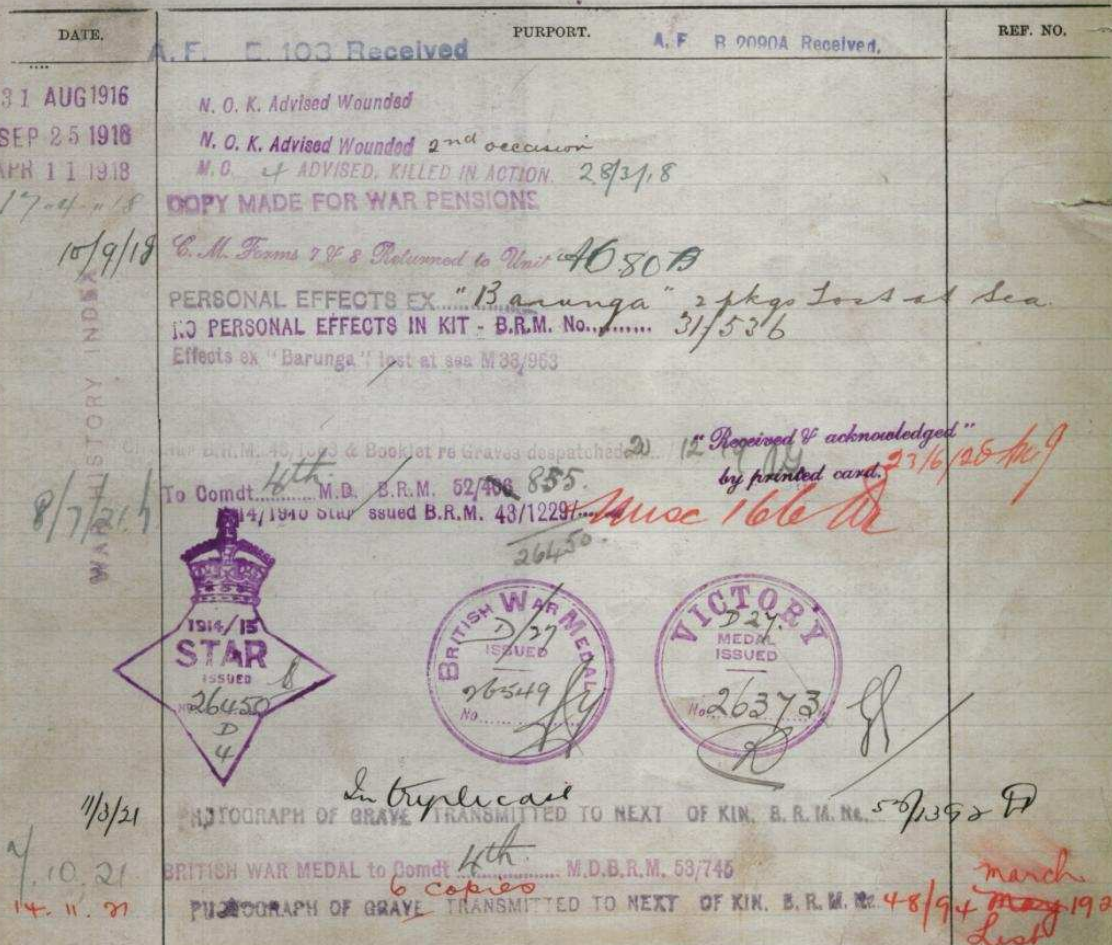 DATE. PURPORT. REF. NO.
A.F. E. 103 Received A.F B 2090A Received.
31 AUG 1916 N. O. K. Advised Wounded
SEP 25 1916 N. O. K. Advised Wounded 2nd occasion
APR 11 1918 M.C. & ADVISED, KILLED IN ACTION. 28/3/18
17-4-18 COPY MADE FOR WAR PENSIONS
10/9/18 C. M. Forms 7 & 8 Returned to Unit 80 B
PERSONAL EFFECTS EX "Barunga" 2 pkgs Lost at Sea.
NO PERSONAL EFFECTS IN KIT - B.R.M. No. 31/536
Effects ex "Barunga" lost at sea M 33/963
WAR HISTORY INDEX
& Booklet re Graves despatched 20 12 19
"Received & acknowledged"
by printed card. 23/6/20
8/7/21 To Comdt 4th M.D. B.R.M. 52/ 855.
1914/1915 Star issued B.R.M. 43/1229/ Misc 166
26450.
1914/15
STAR
ISSUED
No 26450
D
4
BRITISH WAR MEDAL
D/27
ISSUED
26549
No
VICTORY
D 27.
MEDAL
ISSUED
No. 26373
In triplicate
11/3/21 PHOTOGRAPH OF GRAVE TRANSMITTED TO NEXT OF KIN. B. R. M. No. 56/1392
.10.21 BRITISH WAR MEDAL to Comdt 4th M.D.B.R.M. 53/745
6 copies
14.11.21 PHOTOGRAPH OF GRAVE TRANSMITTED TO NEXT OF KIN. B. R. M. No 48/94
March
May 192
List